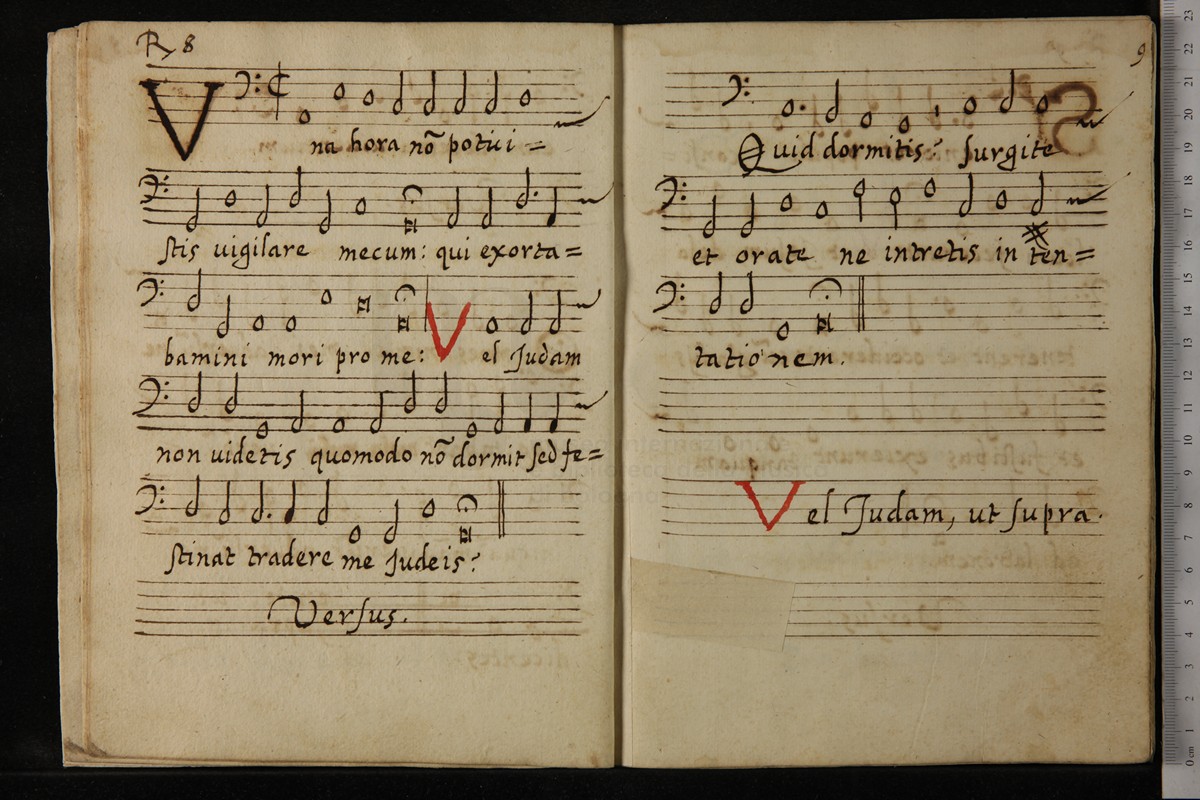 R 8
Vna hora nō potui=
stis uigilare mecum: qui exorta=
bamini mori pro me: Vel Judam
non uidetis quomodo nō dormit sed fe=
stinat tradere me Judeis?
Versus.
9
Quid dormitis? surgite
et orate ne intretis in ten=
tationem.
Vel Judam, ut supra.